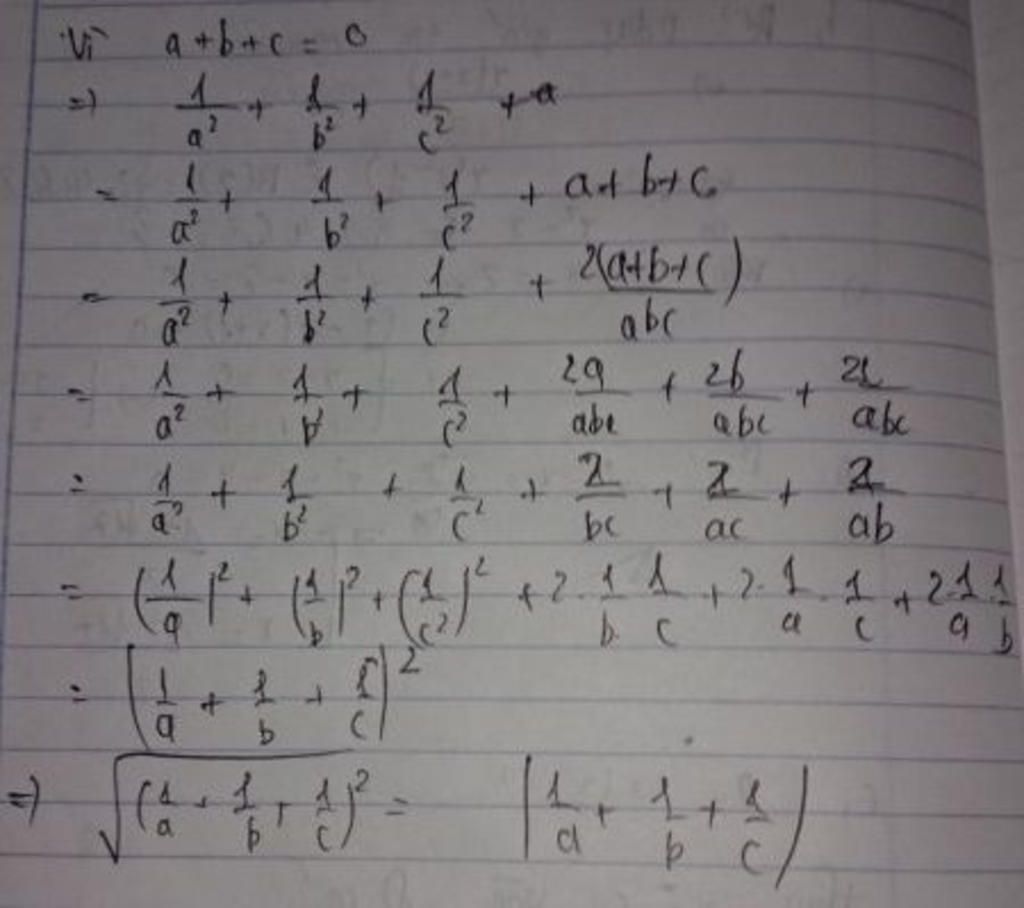 Vì a+b+c = 0
=) 1/a² + 1/b² + 1/c² + a
= 1/a² + 1/b² + 1/c² + a+b+c
= 1/a² + 1/b² + 1/c² + 2(a+b+c)/abc
= 1/a² + 1/b² + 1/c² + 2a/abc + 2b/abc + 2c/abc
= 1/a² + 1/b² + 1/c² + 2/bc + 2/ac + 2/ab
= (1/a)² + (1/b)² + (1/c²)² + 2·1/b·1/c + 2·1/a·1/c + 2·1/a·1/b
= (1/a + 1/b + 1/c)²
=) √(1/a + 1/b + 1/c)² = |1/a + 1/b + 1/c|